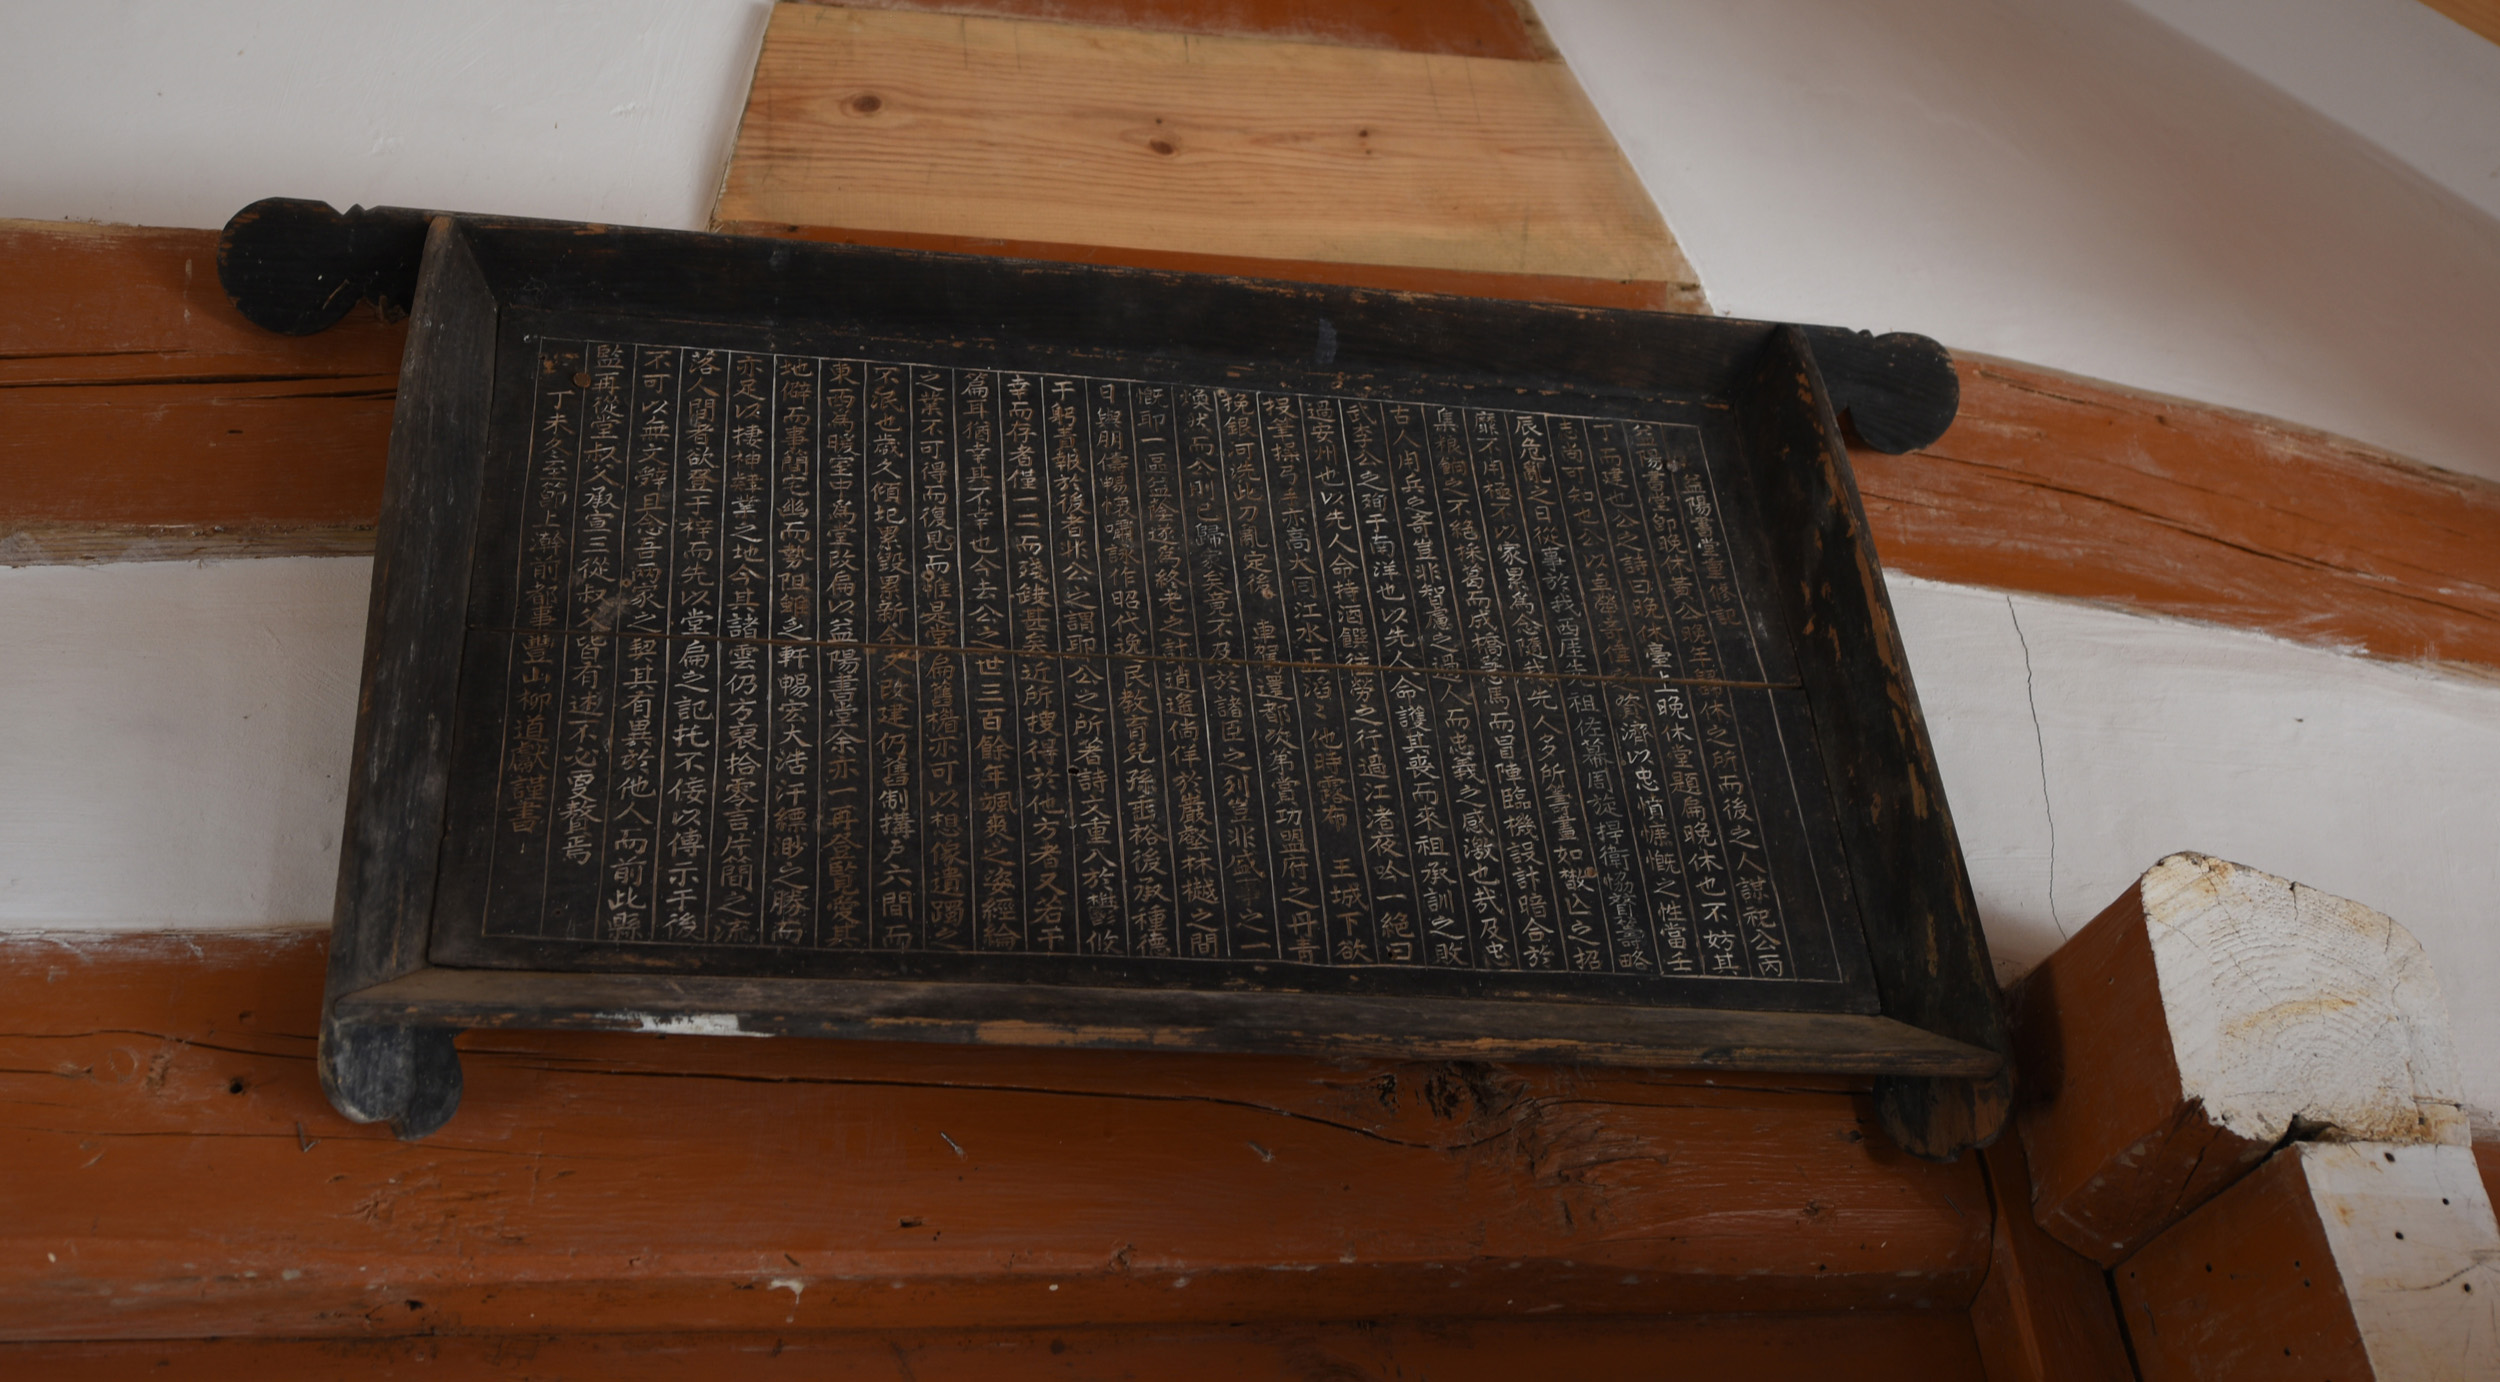 益陽書堂重修記
益陽書堂卽晚休黃公晚年謀休之所而後之人謀祀公丙
丁而建也公之詩曰晚休臺上晚休堂題扁晚休也不妨其
志尚可知也公以奇偉之 濟以忠憤慷慨之性當壬
辰危亂之日從事於我西厓先祖佐幕周旋捍衛協贊籌略
靡不用極不以家累爲念隨我先人多所籌畫如散亾之招
集粮餉之不絕採葛而成橋 馬而冒陣臨機設計暗合於
古人用兵之奇豈非智慮之過人而忠義之感激也哉及忠
武李公之殉于南洋也以先人命護其喪而來祖承訓之敗
過安州也以先人命持酒饌往勞之行過江渚夜吟一絕曰
投筆操弓手亦高大同江水正滔〻他時露布 王城下欲
挽銀河洗此刀亂定後 車駕還都次第當功盟府之丹靑
煥然而公則已歸家矣竟不及於諸臣之列豈非盛事之一
慨耶一區益陰遂爲終老之計逍遙倘佯於巖壑林樾之間
日與朋儔暢 嘯詠作昭代逸民敎育兒孫 裕後承種德
于躬責報於後者非公之謂耶公之所著詩文重入於 攸
幸而存者僅一二而殘鍥甚矣近所搜得於他方者又若干
篇耳猶幸其不幸也今去公之世三百餘年颯爽之姿經綸
之業不可得而復見而惟是堂扁舊楣亦可以想像遺躅之
不泯也歲久傾圮累毀累新今又改建仍舊制搆戶六間而
東西爲暖室中爲堂改扁以益陽書堂余亦一再登覽愛其
地僻而事簡宅幽而勢阻雖乏軒暢宏大浩汗縹渺之勝而
亦足以棲神韡 之地今其諸雲仍方裒拾零言片簡之流
落人間者欲登于梓而先以堂扁之記托不侫以傳示于後
不可以無文辭且念吾兩家之契其有異於他人而前此縣
監再從堂叔父承宣三從叔父皆有述不必更贅焉
丁未冬至節上澣前都事豐山柳道獻謹書